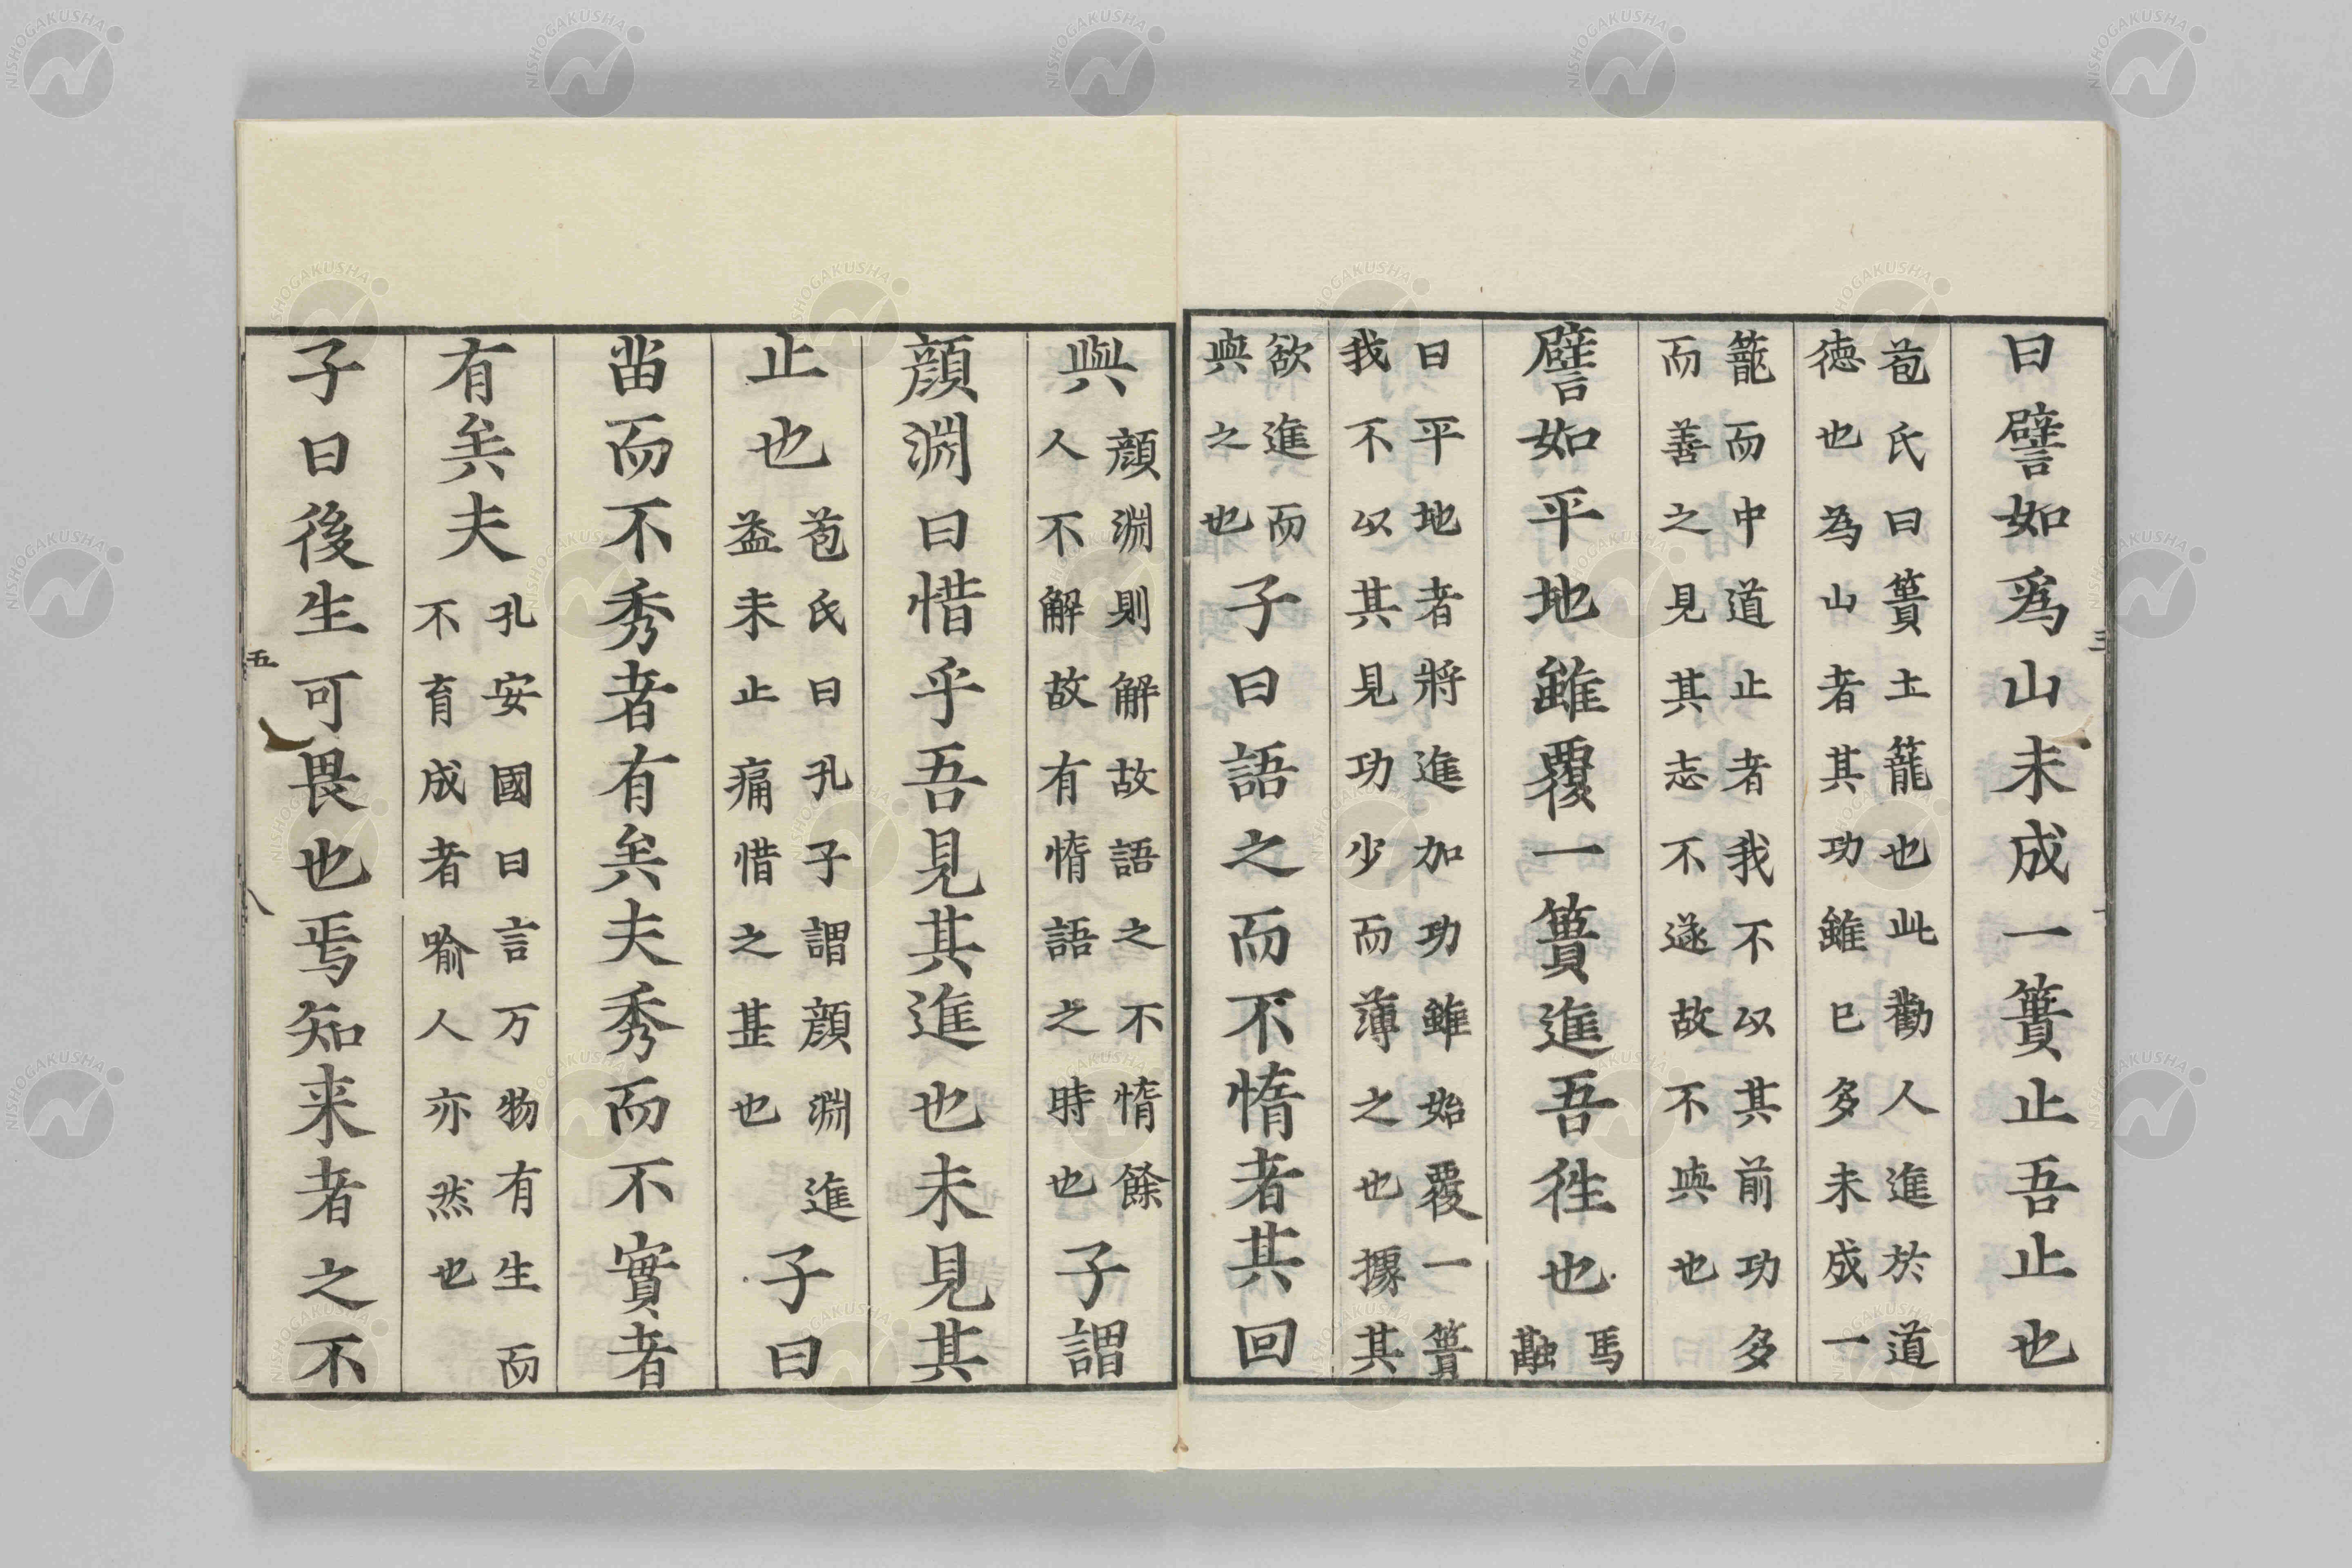 曰譬如爲山未成一簣止吾止也
苞氏曰簣土籠也此勸人進於道
徳也為山者其功雖已多未成一
籠而中道止者我不以其前功多
而善之見其志不遂故不與也
譬如平地雖覆一簣進吾徃也馬融
曰平地者將進加功雖始覆一簣
我不以其見功少而薄之也據其
欲進而
與之也
子曰語之而不惰者其回
與
顔淵則解故語之不惰餘
人不解故有惰語之時也
子謂
顔淵曰惜乎吾見其進也未見其
止也
苞氏曰孔子謂顔淵進
益未止痛惜之甚也
子曰
苗而不秀者有矣夫秀而不實者
有矣夫
孔安國曰言万物有生而
不育成者喻人亦然也
子曰後生可畏也焉知来者之不
三
五
八
NISHOGAKUSHA